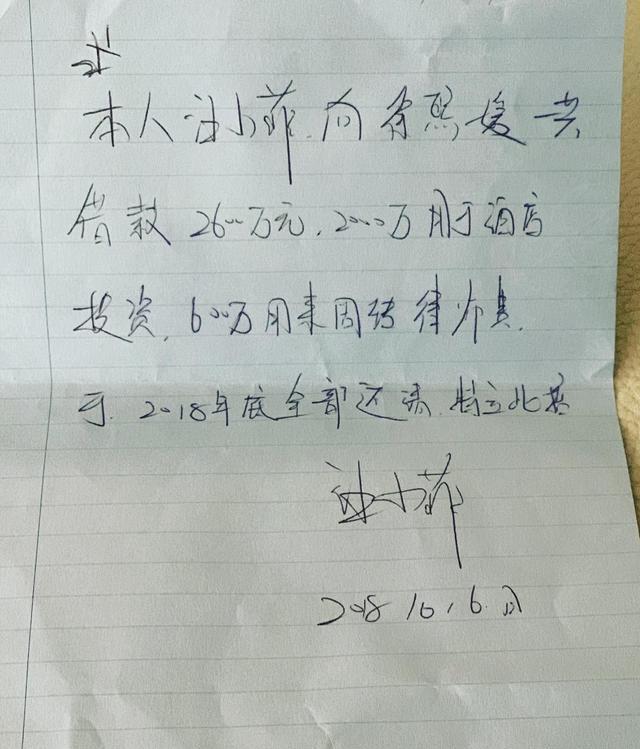 本人汪小菲.向徐熙媛共
借款2600万元.2000万用于酒店
投资.600万用来周转律师费.
于.2018年底全部还清.特立此
汪小菲
2018.10.6.